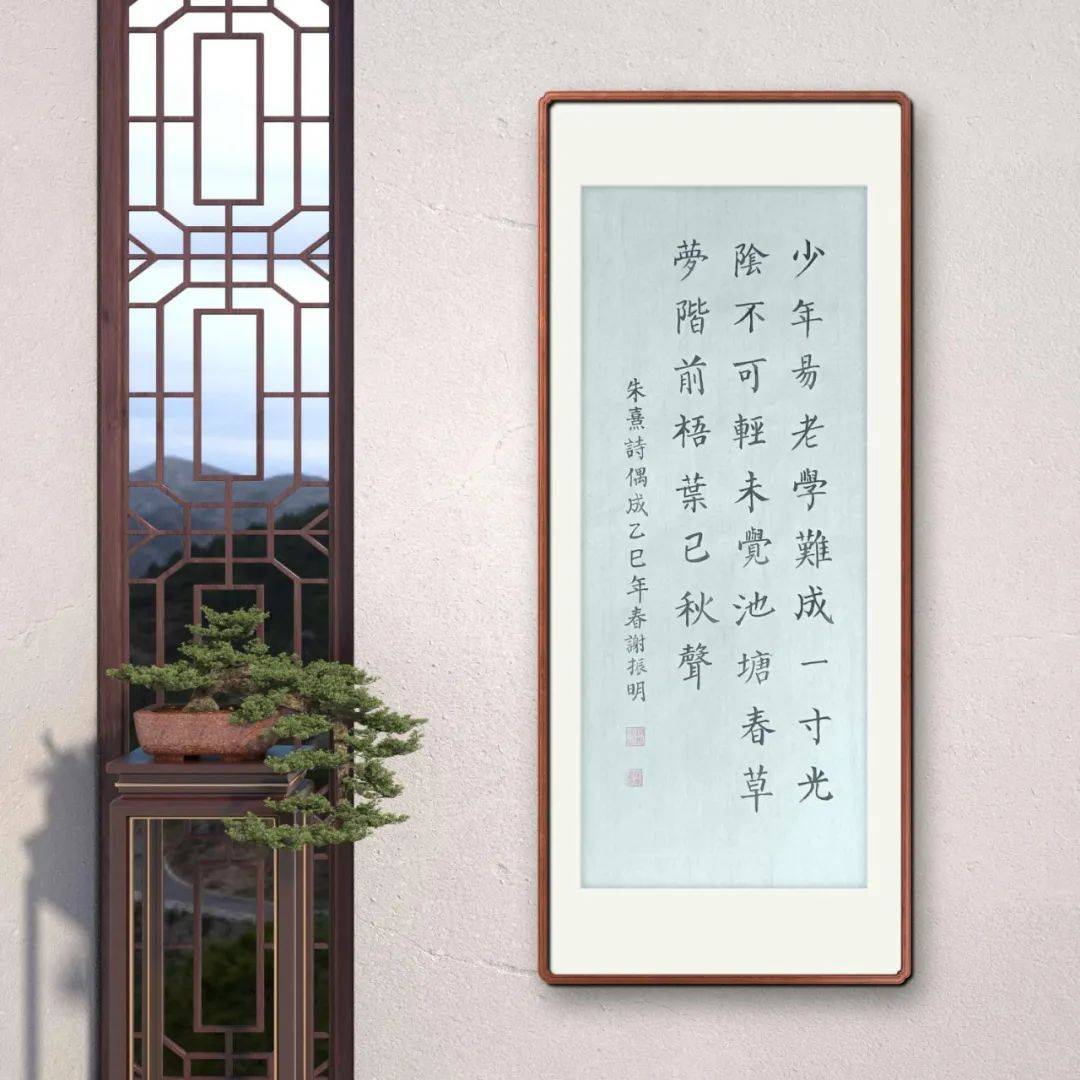 少年易老學難成一寸光
陰不可輕未覺池塘春草
夢階前梧葉已秋聲
朱熹詩偶成乙巳年春謝振明